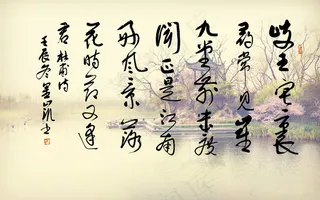 岐王宅裏
尋常見崔
九堂前幾度
聞正是江南
好風景落
花時節又逢
君 杜甫詩
壬辰冬